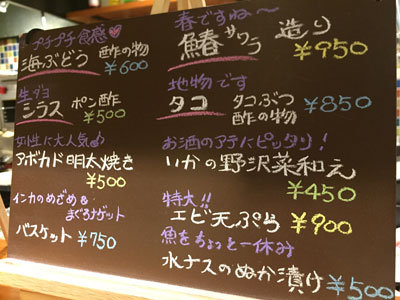 プチプチ食感♥
海ぶどう 酢の物
¥600
生ダコ
ミラス ポン酢
¥500
女性に大人気♪
アボカド明太焼き
¥500
インカのめざめ&
まぐろナゲット
バスケット ¥750
春ですね〜
鰆 サワラ 造り
¥950
地物です
タコ タコぶつ
酢の物 ¥850
お酒のアテにピッタリ!
いかの野沢菜和え
¥450
特大!!
エビ天ぷら ¥900
魚をちょっと一休み
水ナスのぬか漬け ¥500